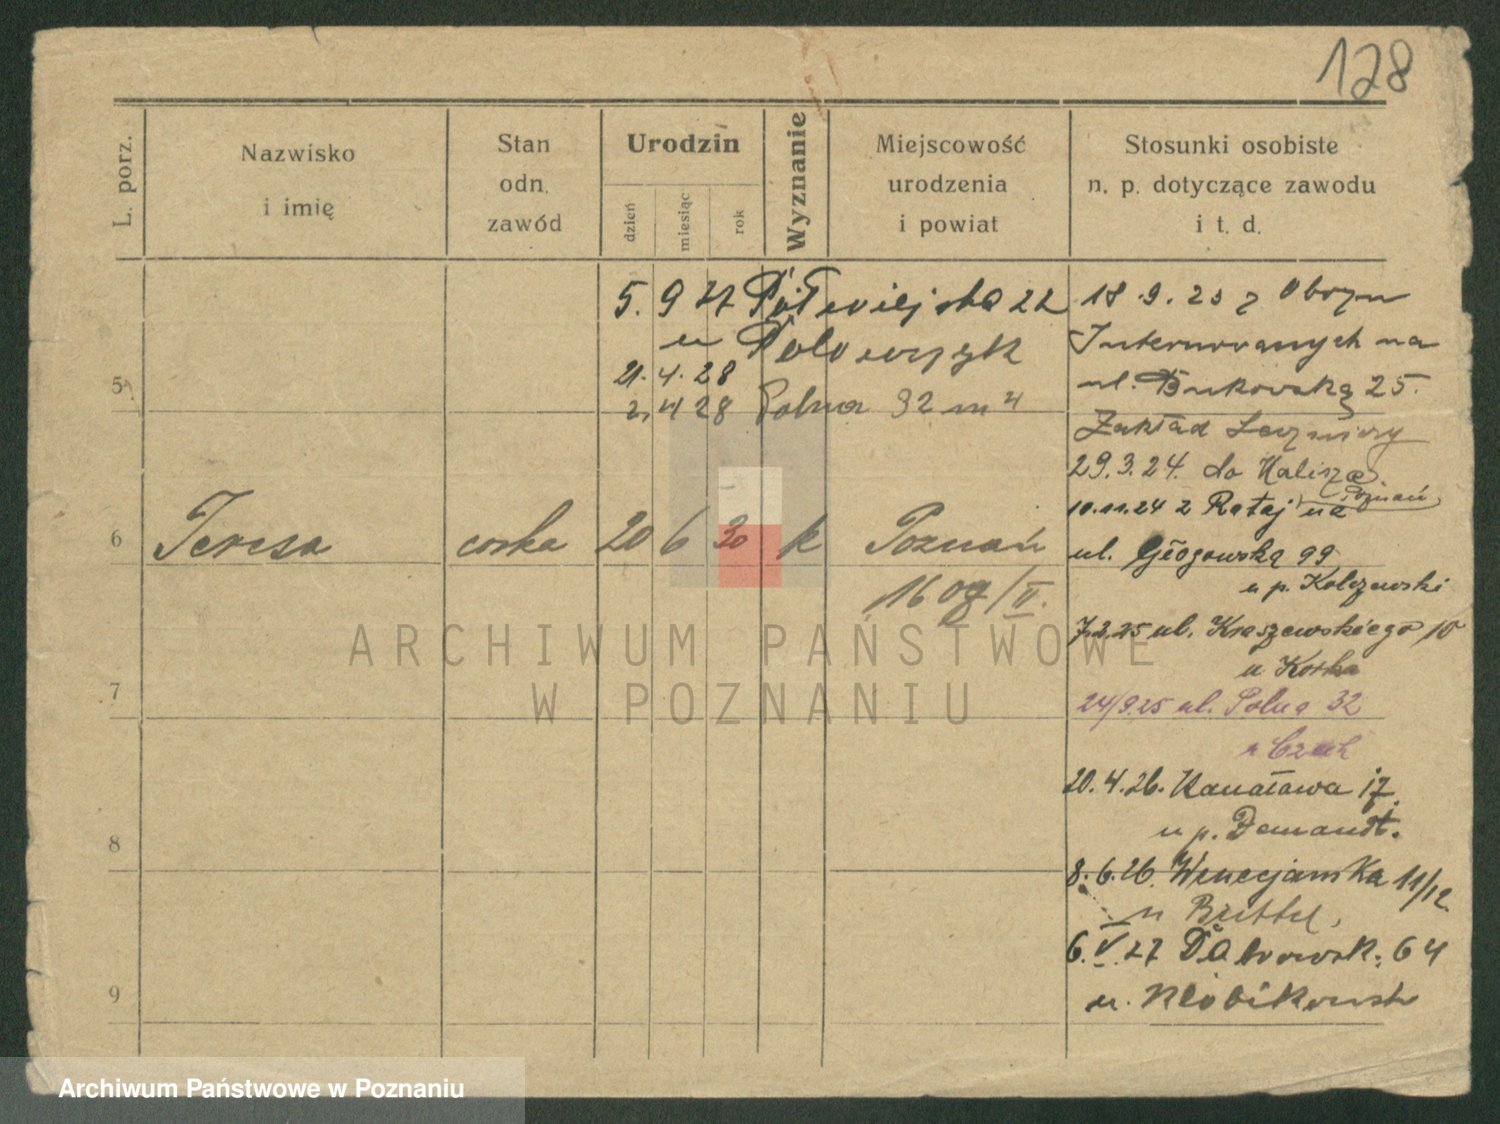 128
L. porz.
Nazwisko
i imię
Stan
odn.
zawód
Urodzin
dzień
miesiąc
rok
Wyznanie
Miejscowość
urodzenia
i powiat
Stosunki osobiste
n. p. dotyczące zawodu
i t. d.
5. 9 27 Półwiejska 22
u
21. 4. 28
2. 4 28 Polna 32 m 4
5
6 Teresa corka 20 6 30 k Poznań
7
8
9
18. 9. 23 z Obozu
Internowanych na
ul. Bukowską 25.
Zakład Leczniczy
29. 3. 24. do Kalisza.
10.11.24 z Rataj na Poznań
ul. Głogowską 99
u p. Kolczewski
7.2.25 ul. Kraszewskiego 10
u
24/9.25 ul. Polna 32
u Czech
20. 4. 26. Kanałowa 17.
u p. Demandt.
8. 6. 26. Wenecjańska 11/12
u
6. V. 27 Dąbrowsk. 64
u. Kłobikowsk
ARCHIWUM PAŃSTWOWE
W POZNANIU
Archiwum Państwowe w Poznaniu